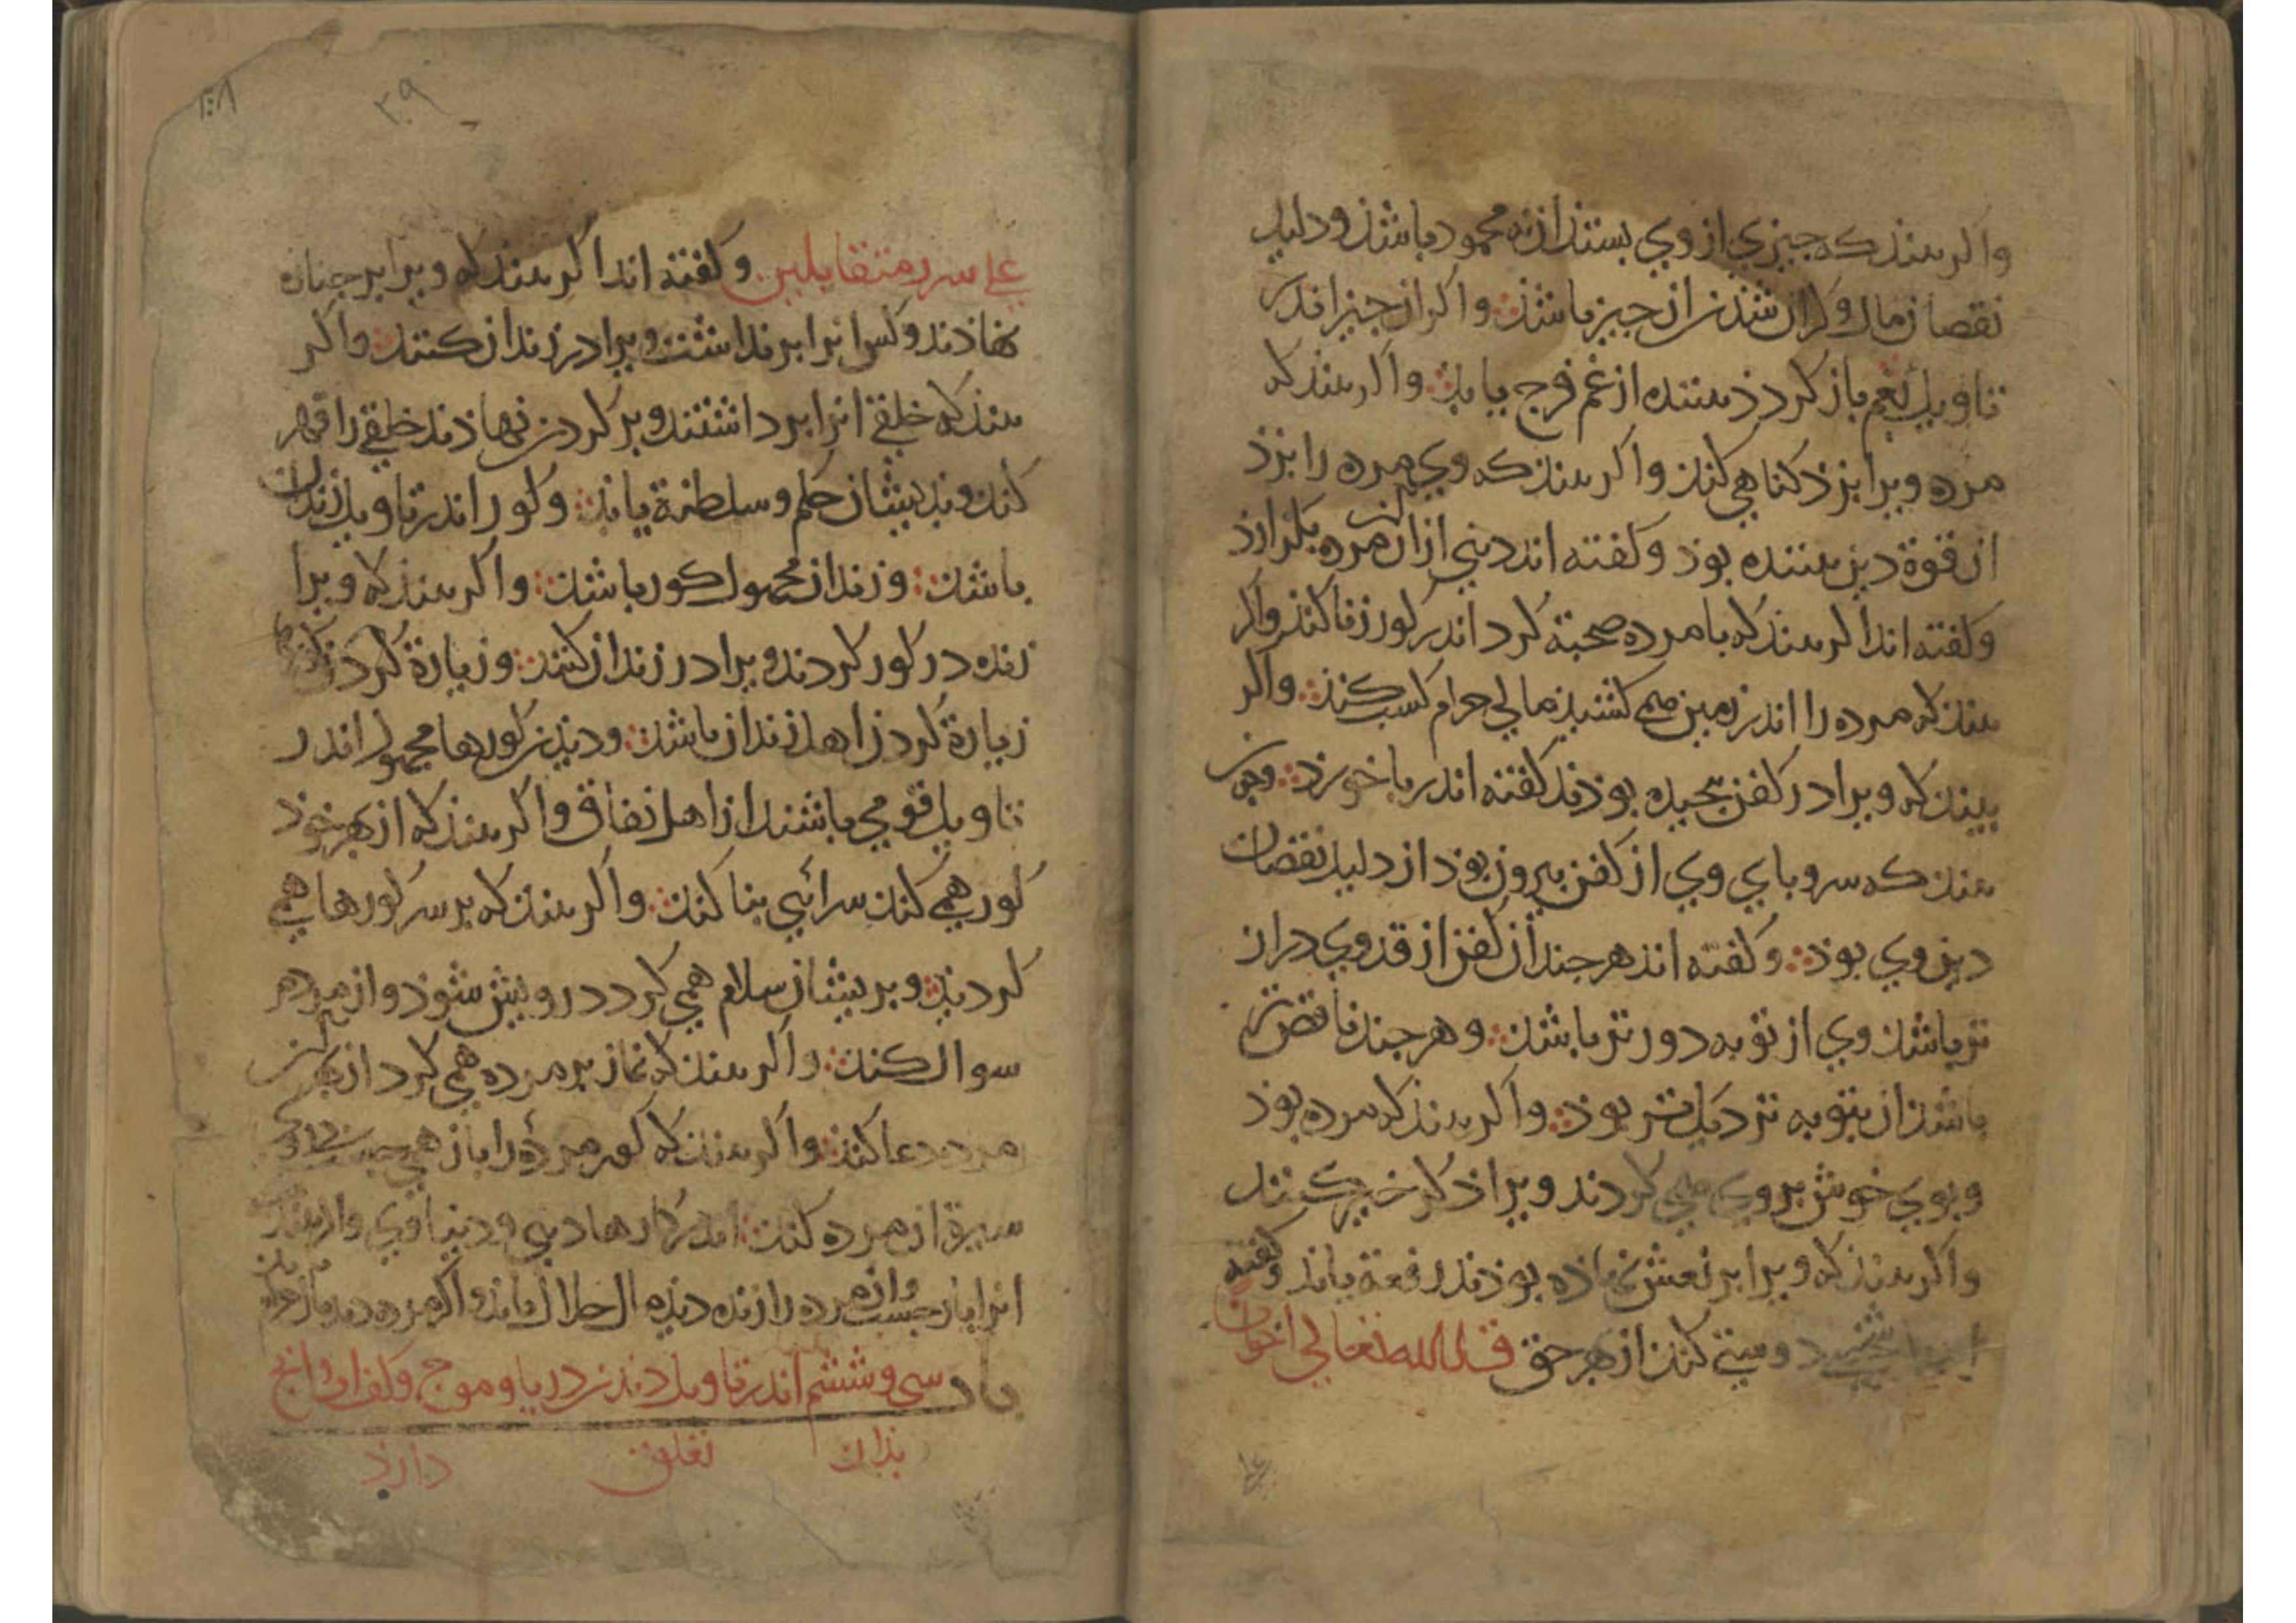 واکر بیند که چیزی از وی بستند از نه محمود باشذ و دلیل
نقصان مال و کران شدن ان چیز باشذ واکر ان چیز اندر
تاویل بغم باز کردذ بیننده از غم فرج یابذ واکر بیند که
مرده ویرا بزذ کناهی کند واکر بیند که وی مرده را بزذ
از قوة دین بیننده بوذ وکفته اند دینی از ان مرده بکزارذ
وکفته اند اکر بیند که با مرده صحبة کرد اندر کور زنا کند واکر
بیند که مرده را اندر زمین می کشید مالی حرام کسب کند واکر
بیند که ویرا در کفن بیچیده بوذند کفته اند ربا خورذ
بیند که سر و بای وی از کفن بیرون بوذ از دلیل نقصان
دین وی بوذ وکفته اند هر چند ان کفن از قد وی دراز
تر باشذ وی از توبه دورتر باشذ وهر چند ناقص تر
باشذ ان بتوبه نزدیک تر بوذ واکر بیند که مرده بوذ
وبوی خوش بر وی می کردند ویرا ذکر خیر کنند
واکر بیند که ویرا بر نعش نهاذه بوذند رفعة یابذ وکفته
دوستی کند از بهر حق قال الله تعالی اخوان
علی سرر متقابلین وکفته اند اکر بیند که ویرا بر جنازه
نهاذند وکس انرا بر نداشت ویرا در زندان کنند واکر
بیند که خلقی انرا بر داشتند وبر کردن نهاذند خلقی را قهر
کند وبریشان حکم وسلطنة یابذ وکور اندر تاویل زندان
باشذ وزندان محمول کور باشذ واکر بیند که ویرا
زنده در کور کردند ویرا در زندان کنند وزیارة کردن
زیارة کردن اهل زندان باشذ ودیذن کورها محمول اندر
تاویل قومی باشند از اهل نفاق واکر بیند که از بهر خوذ
کور همی کند سرائی بنا کند واکر بیند که بر سر کورها همی
کردیذ وبریشان سلام همی کرد درویش شوذ واز مردم
سوال کند واکر بیند که نماز بر مرده همی کرد از بهر
مرده دعا کند واکر بیند که کور مرده را باز همی
سیرة ان مرده کند اندر کارها دینی ودنیاوی
انرا باز جست مرده را زنده دیذه مال حلال یابذ واکر مرده دیذ
باب سی وششم اندر تاویل دیذن دریا وموج وکف او وانچ
بذان تعلق دارذ